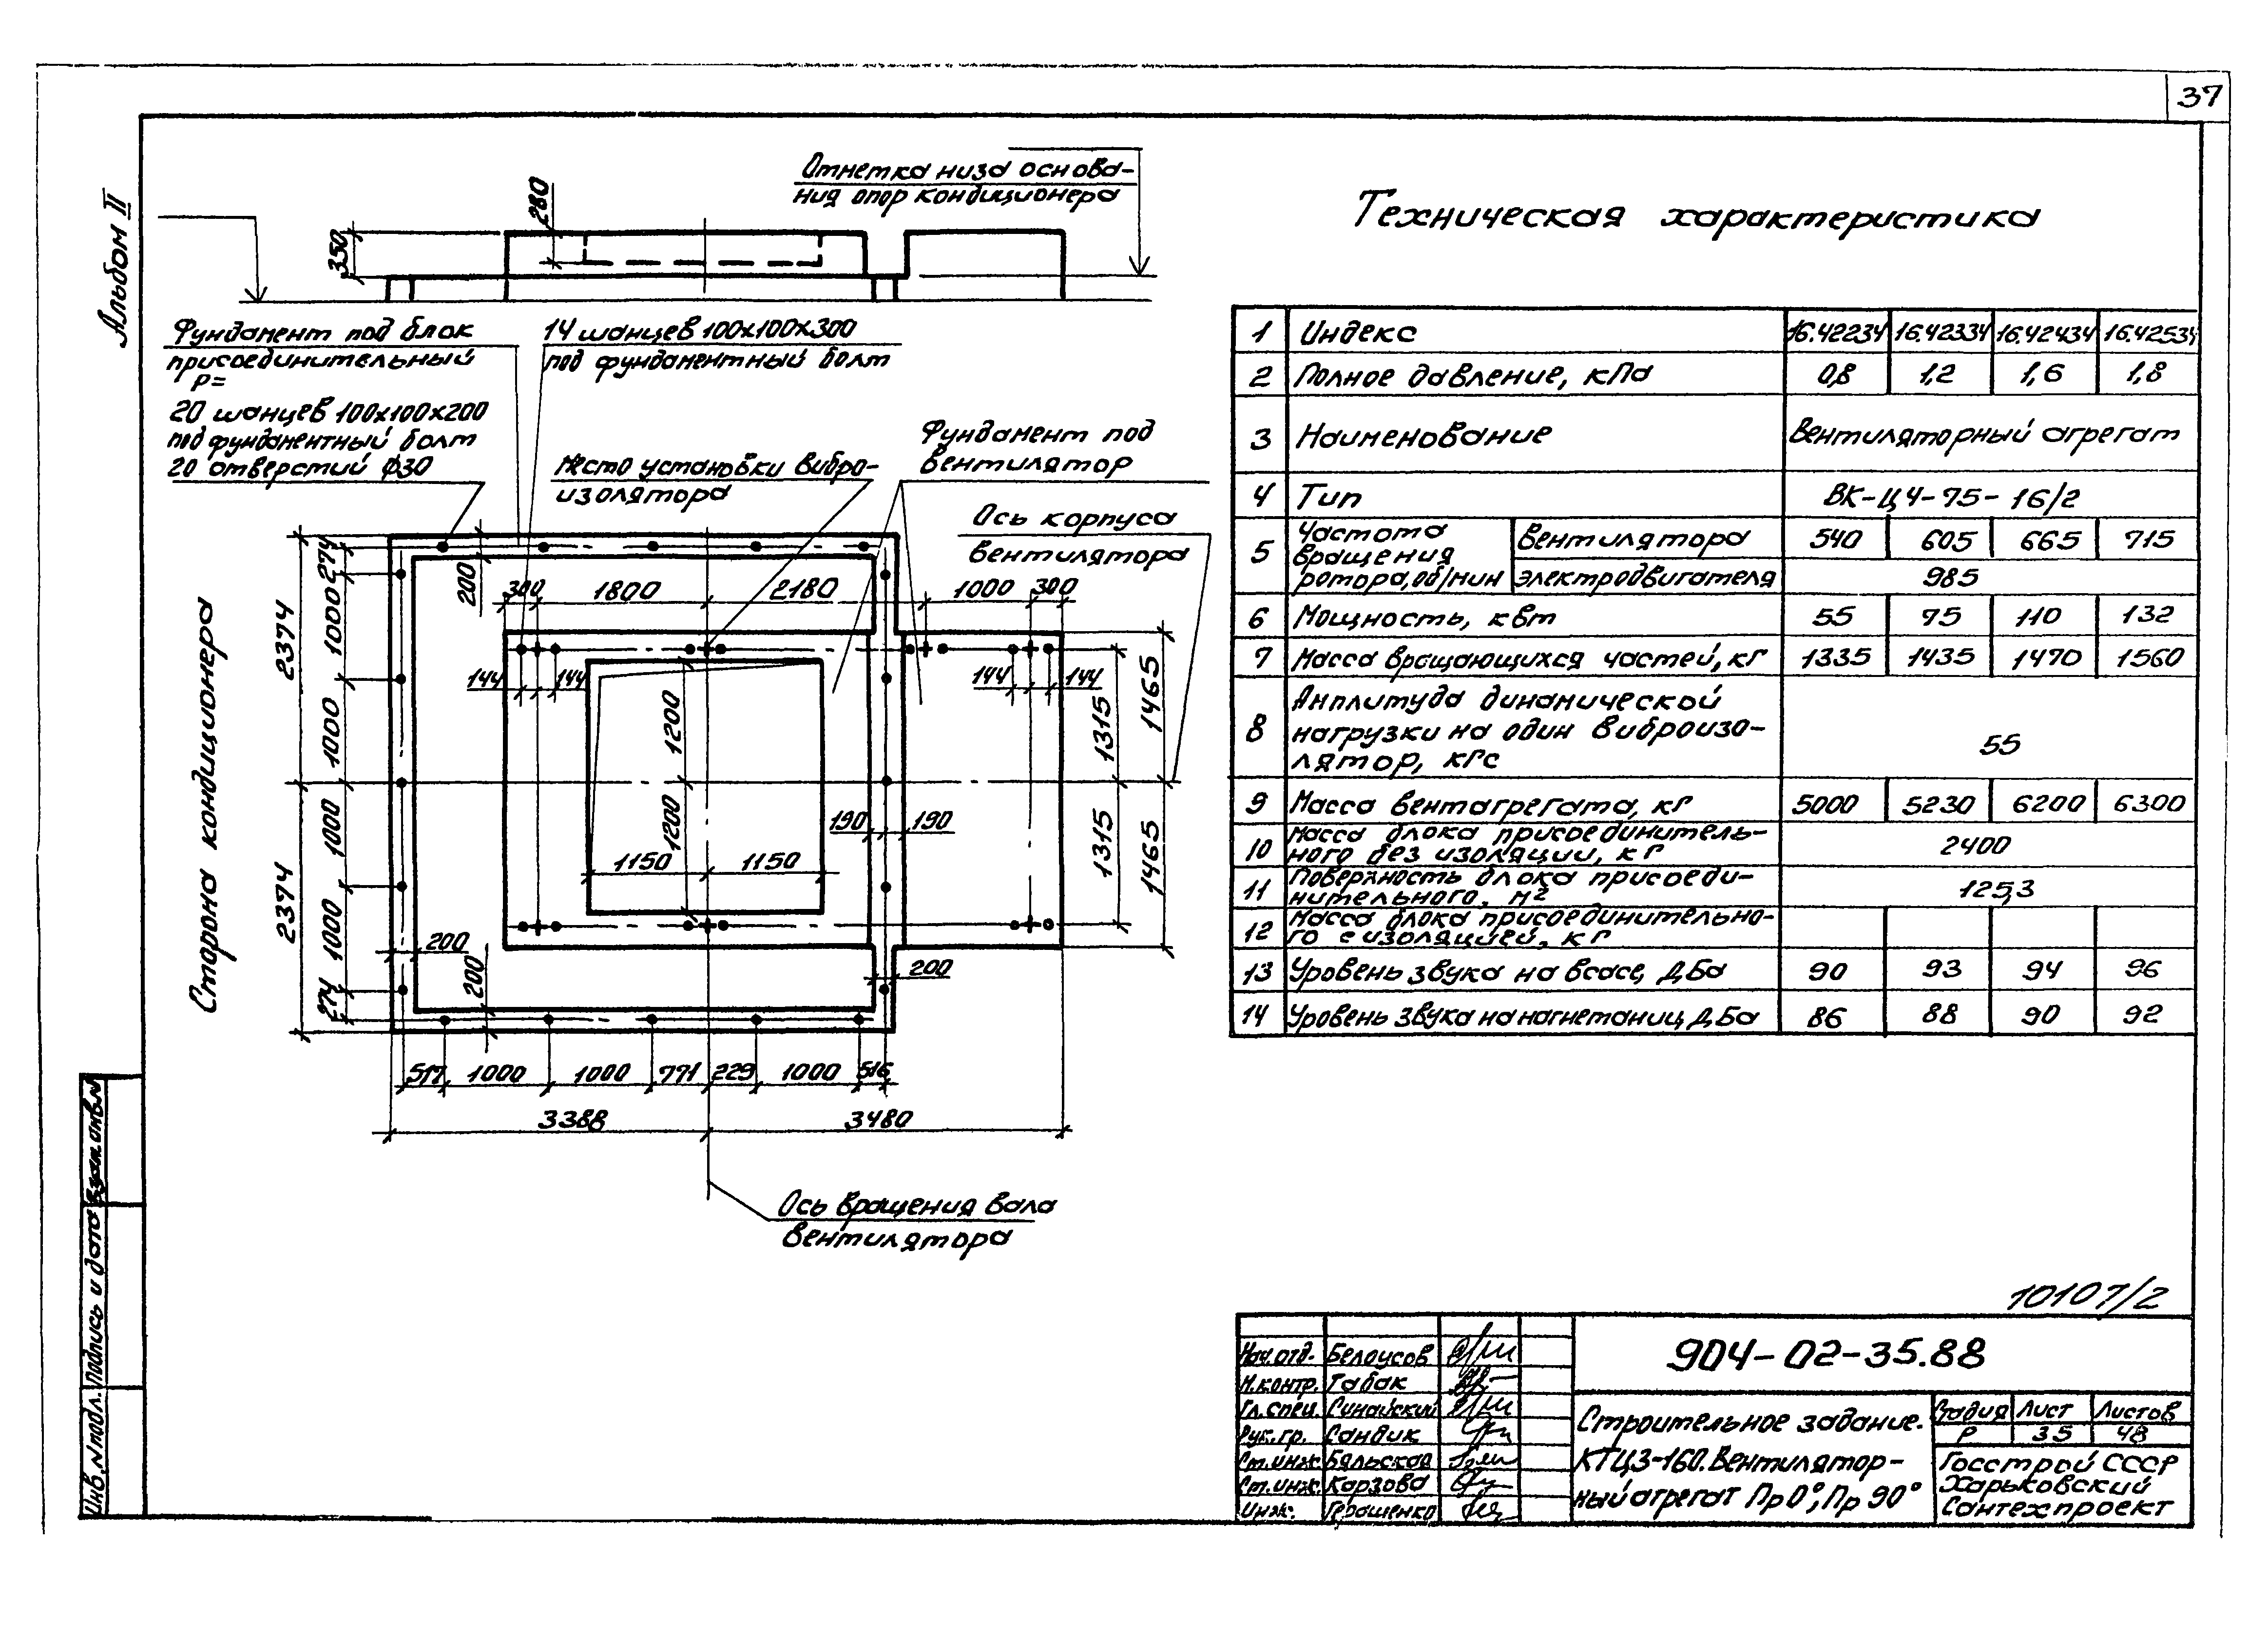 37
Альбом II
Отметка низа основа-
ния опор кондиционера
280
350
Фундамент под блок
присоединительный
P=
14 шанцев 100х100х300
под фундаментный болт
20 шанцев 100х100х200
под фундаментный болт
20 отверстий ф30
Место установки вибро-
изолятора
Фундамент под
вентилятор
Ось корпуса
вентилятора
Сторона кондиционера
274
200
300
1800
2180
1000
300
2374
1000
144
144
144
144
1200
1315
1465
1000
1000
190
190
1200
1315
1465
1150
1150
2374
1000
200
200
200
274
517
1000
1000
771
229
1000
516
3388
3480
Ось вращения вала
вентилятора
Техническая характеристика
1 Индекс 16.42234 16.42334 16.42434 16.42534
2 Полное давление, кПа 0,8 1,2 1,6 1,8
3 Наименование Вентиляторный агрегат
4 Тип ВК-Ц4-75-16/2
5 Частота вращения ротора, об/мин Вентилятора 540 605 665 715
электродвигателя 985
6 Мощность, квт 55 75 110 132
7 Масса вращающихся частей, кг 1335 1435 1470 1560
8 Амплитуда динамической
нагрузки на один виброизо-
лятор, кгс 55
9 Масса вентагрегата, кг 5000 5230 6200 6300
10 Масса блока присоединитель-
ного без изоляции, кг 2400
11 Поверхность блока присоеди-
нительного, м² 125,3
12 Масса блока присоединительно-
го с изоляцией, кг
13 Уровень звука на всасе, дБа 90 93 94 96
14 Уровень звука на нагнетании, дБа 86 88 90 92
10107/2
904-02-35.88
Нач.отд. Белоусов
Н.контр. Табак
Гл.спец. Синайский
Рук.гр. Сандик
Ст.инж. Бяльская
Ст.инж. Карзова
Инж. Геращенко
Строительное задание.
КТЦ3-160. Вентилятор-
ный агрегат Пр0°, Пр90°
Стадия Лист Листов
Р 35 48
Госстрой СССР
Харьковский
Сантехпроект
Инв.№подл. Подпись и дата Взам.инв.№